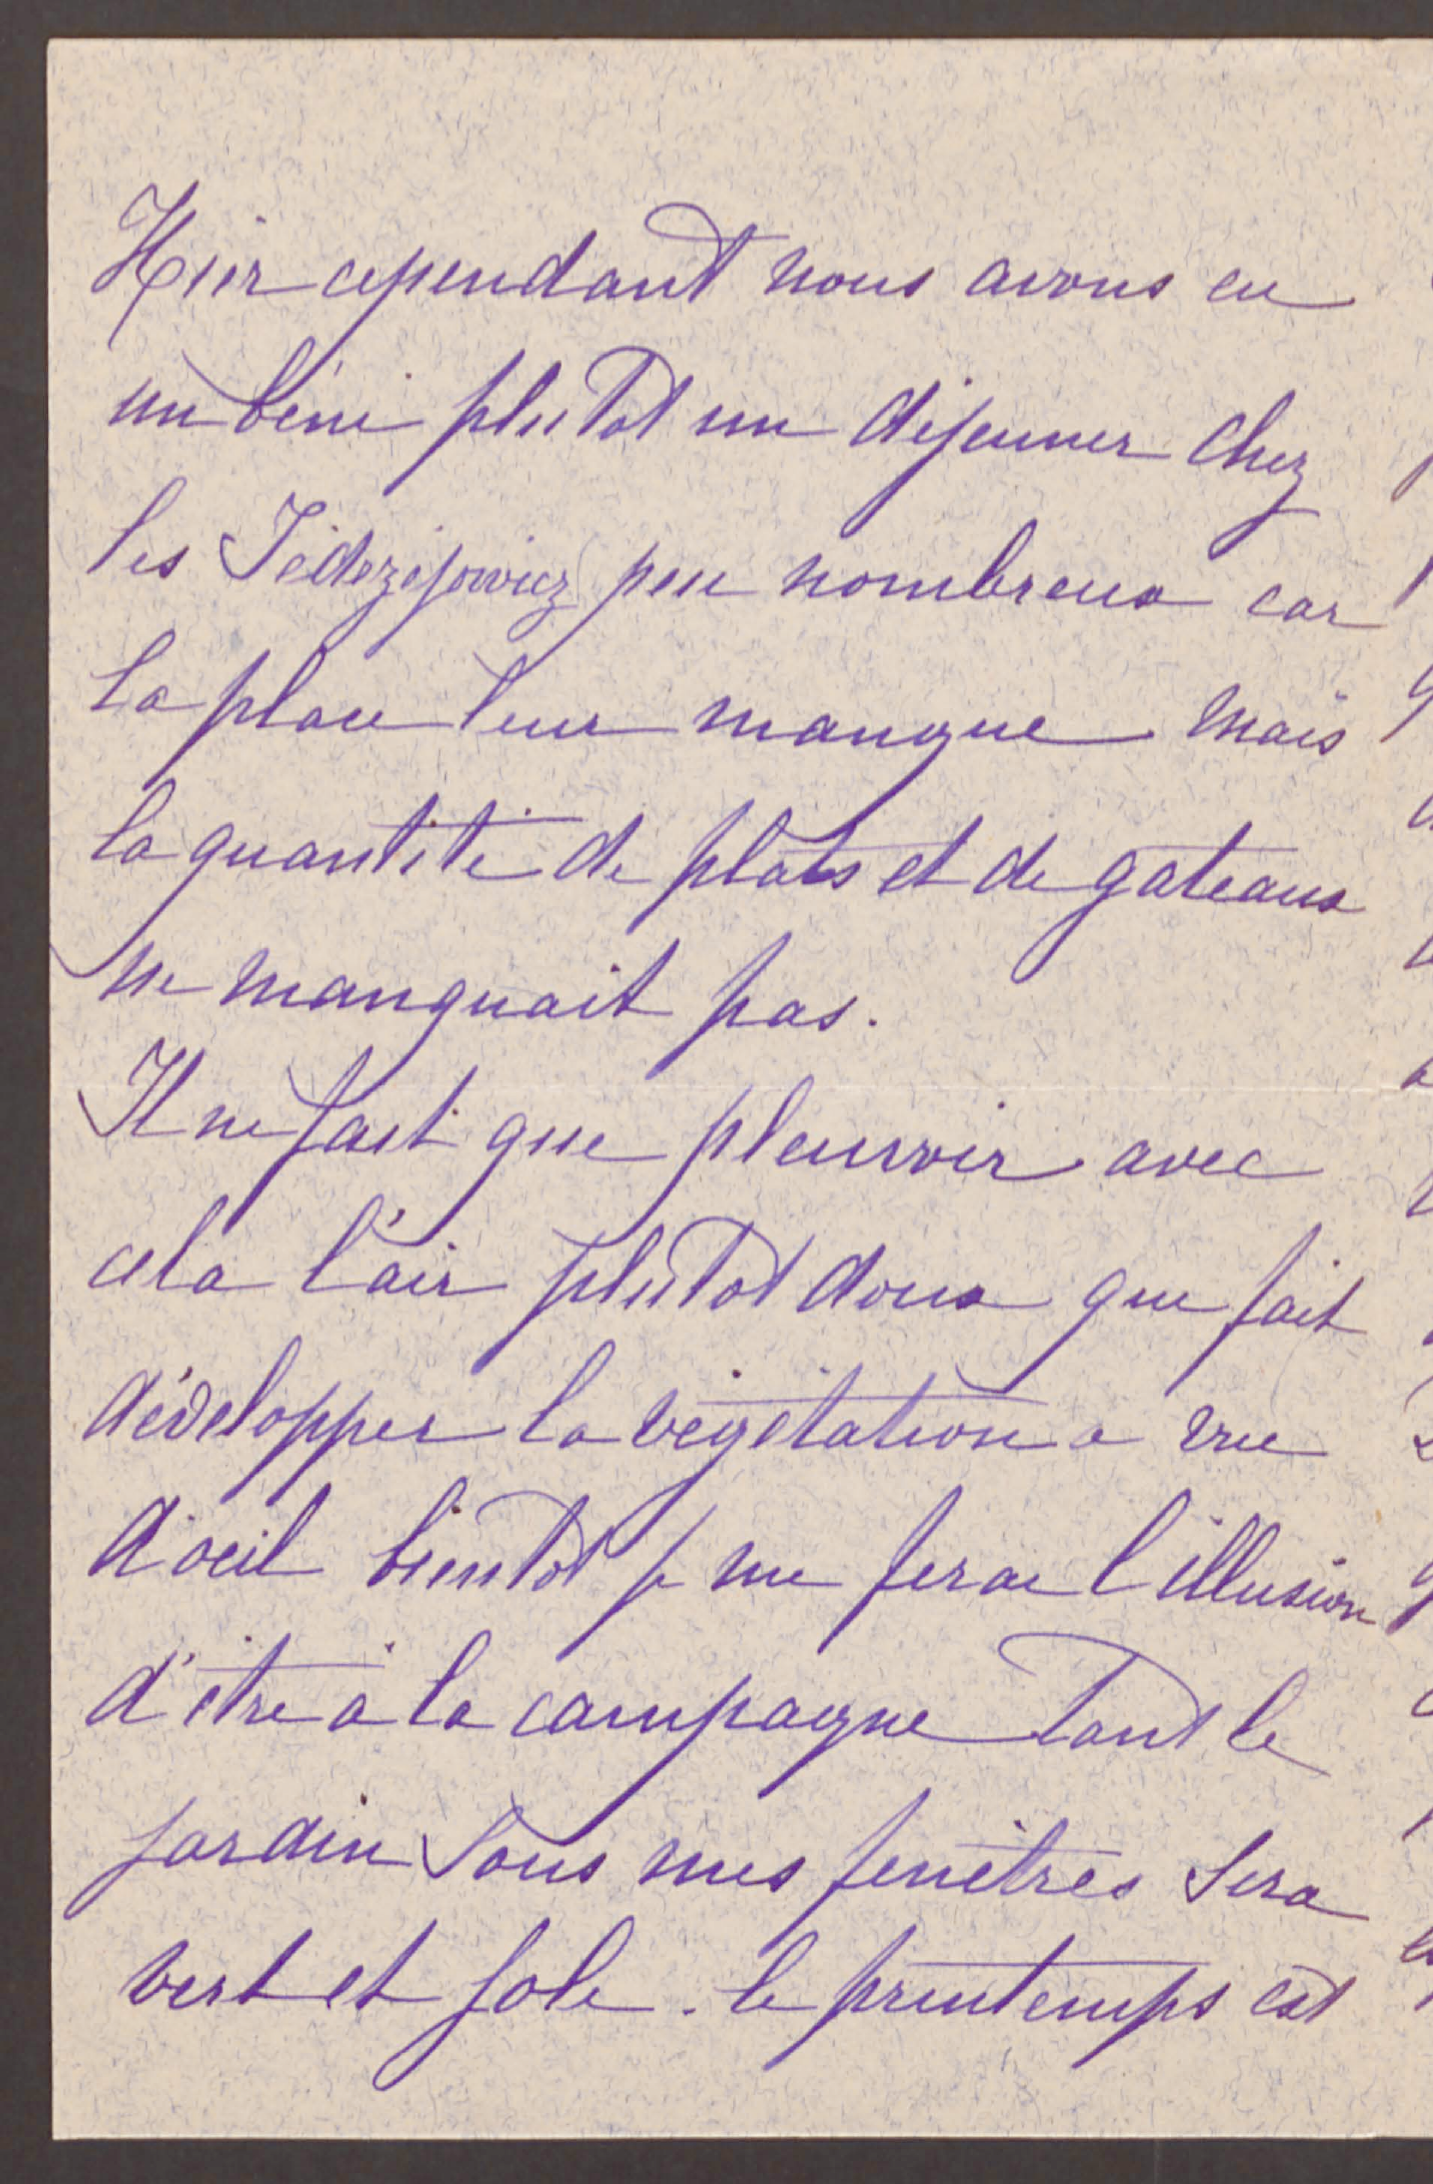 Hier cependant nous avons eu
un béni plutot un déjeuner chez
les Jédrzejowicz peu nombreux car
la place leur manque mais
la quantité de plats et de gateaux
ne manquait pas.
Il ne fait que pleuvoir avec
cela l'air plutot doux que fait
développer la végétation a vue
d'oeil bientot je me ferai l'illusion
d'être à la campagne tant le
jardin sous mes fenêtres sera
vert et joli. le printemps est